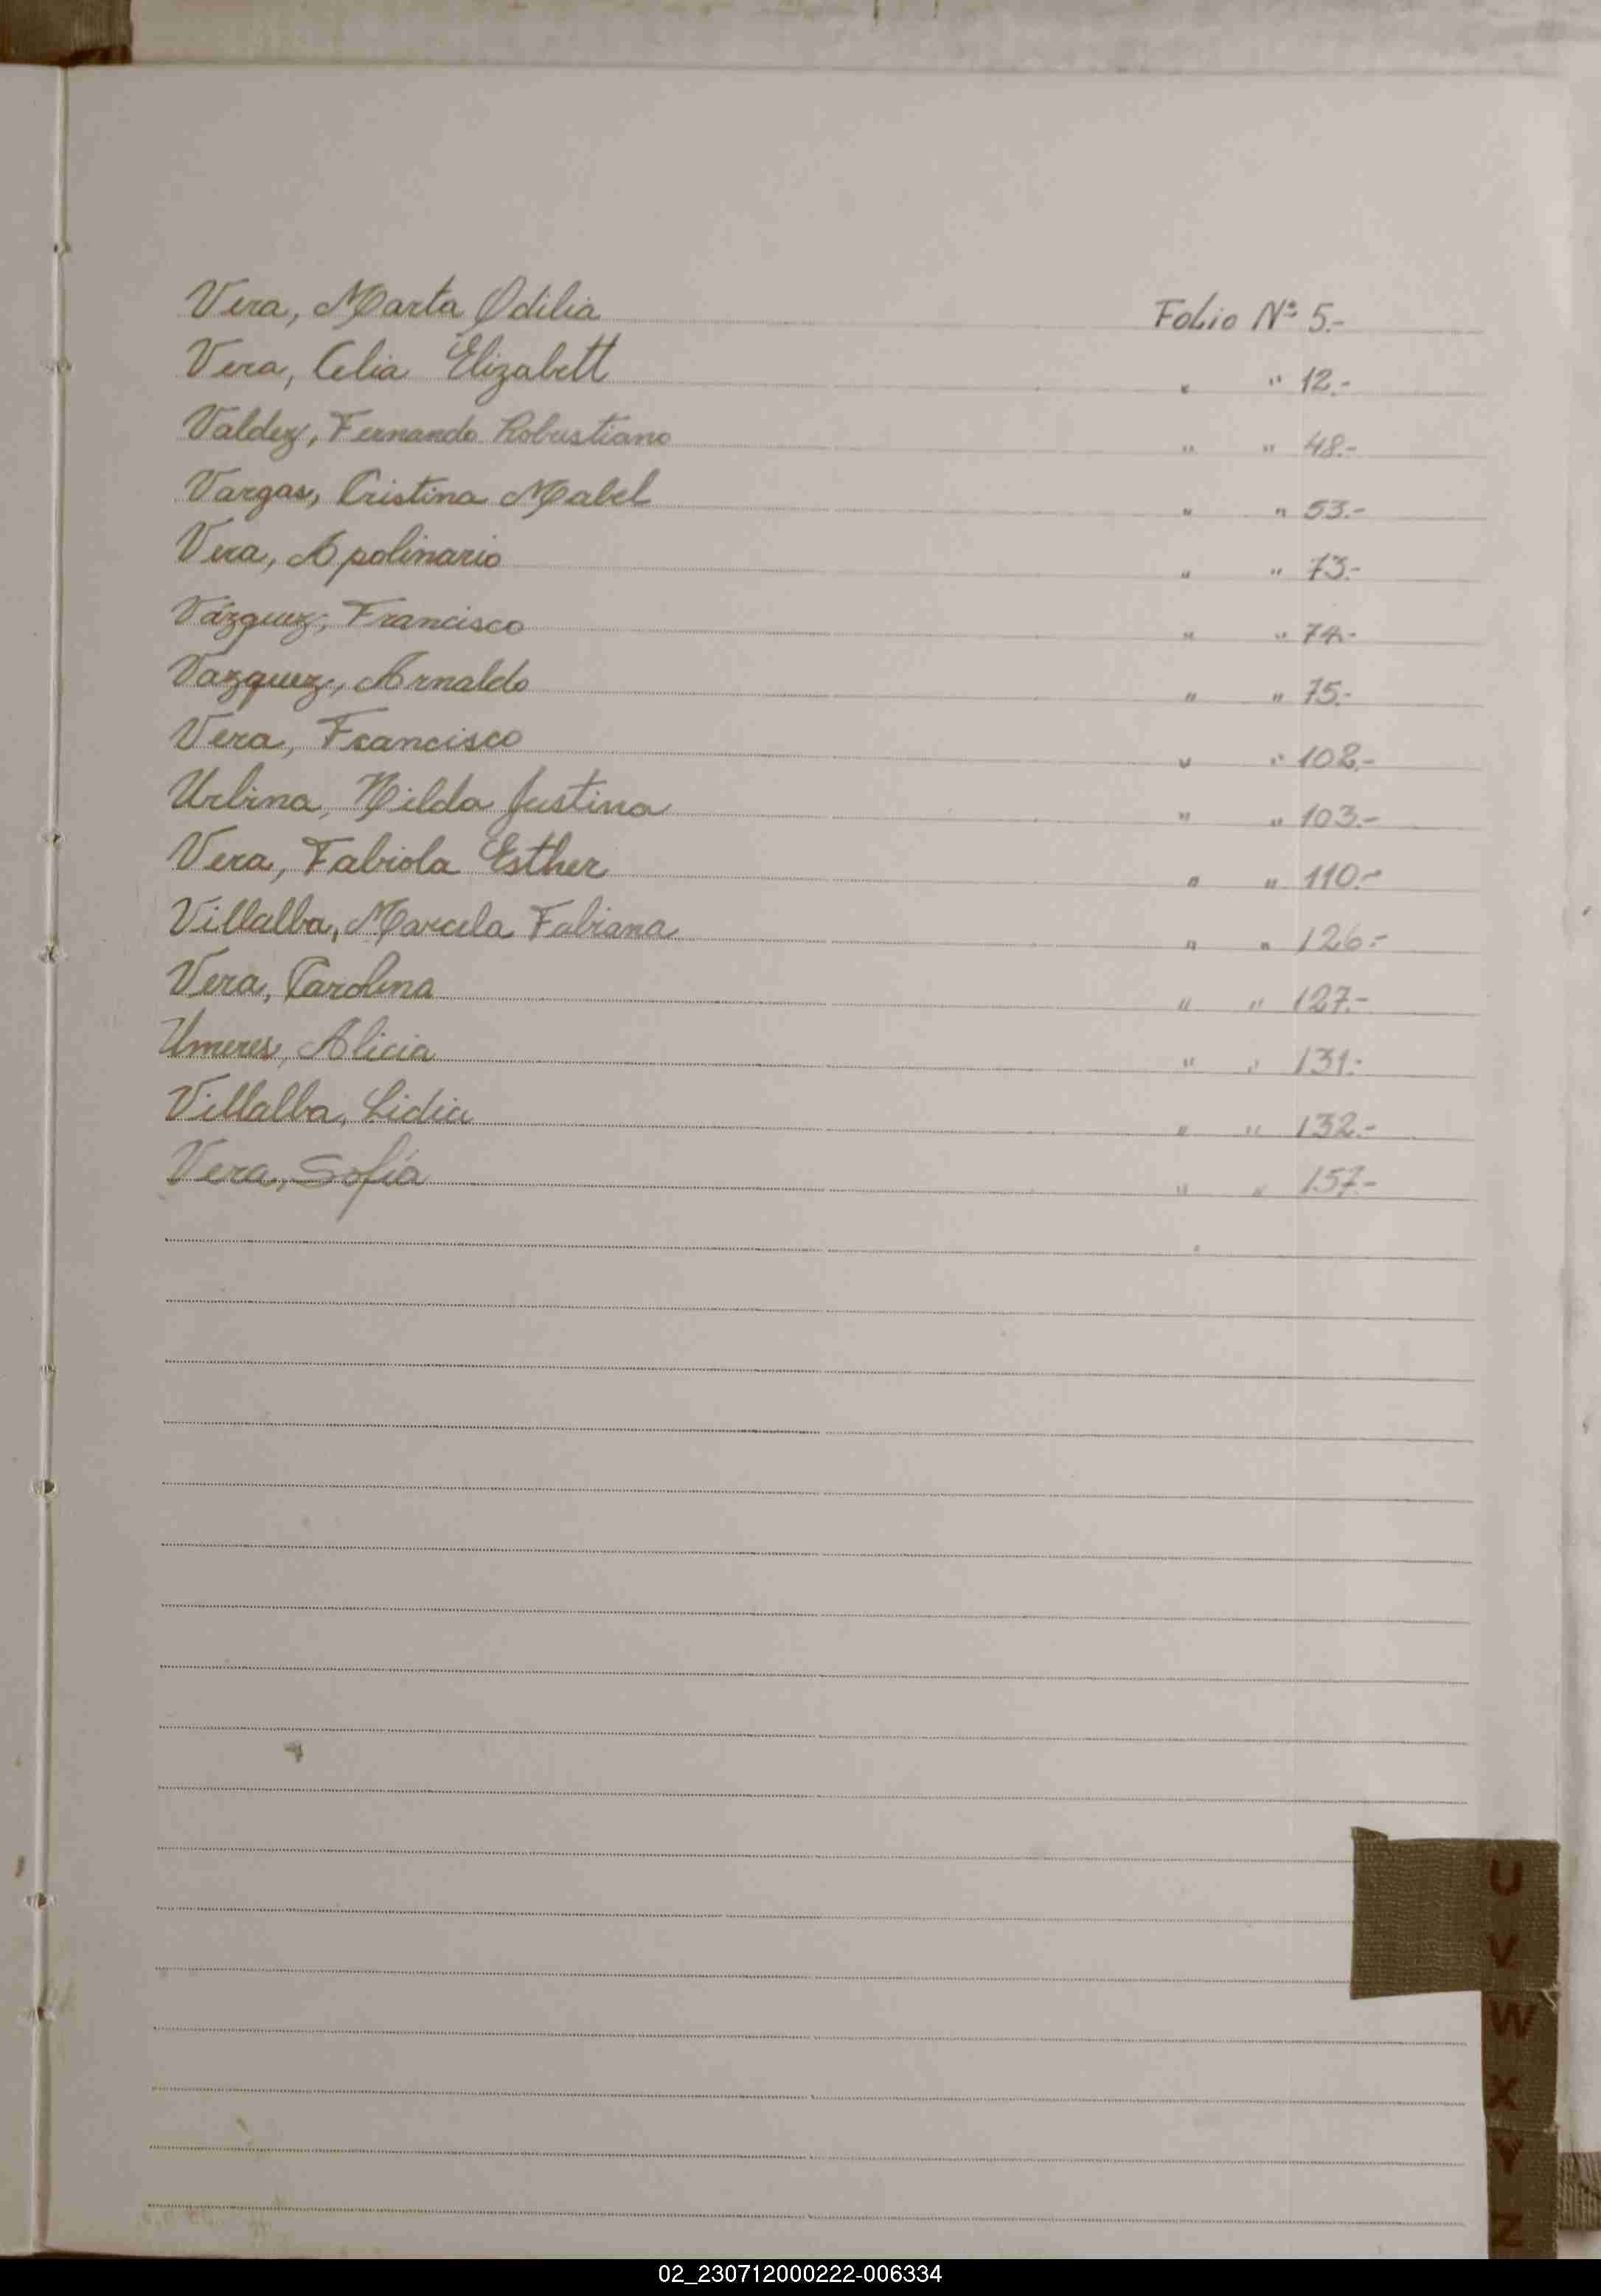 Vera, Marta Odilia Folio Nº 5.-
Vera, Celia Elizabett " " 12.-
Valdez, Fernando Robustiano " " 48.-
Vargas, Cristina Mabel " " 53.-
Vera, Apolinario " " 73.-
Vázquez, Francisco " " 74.-
Vazquez, Arnaldo " " 75.-
Vera, Francisco " " 102.-
Urbina, Nilda Justina " " 103.-
Vera, Fabiola Esther " " 110.-
Villalba, Marcela Fabiana " " 126.-
Vera, Carolina " " 127.-
Umeres, Alicia " " 131.-
Villalba, Lidia " " 132.-
Vera, Sofía " " 157.-
U
V
W
X
Y
Z
02_230712000222-006334